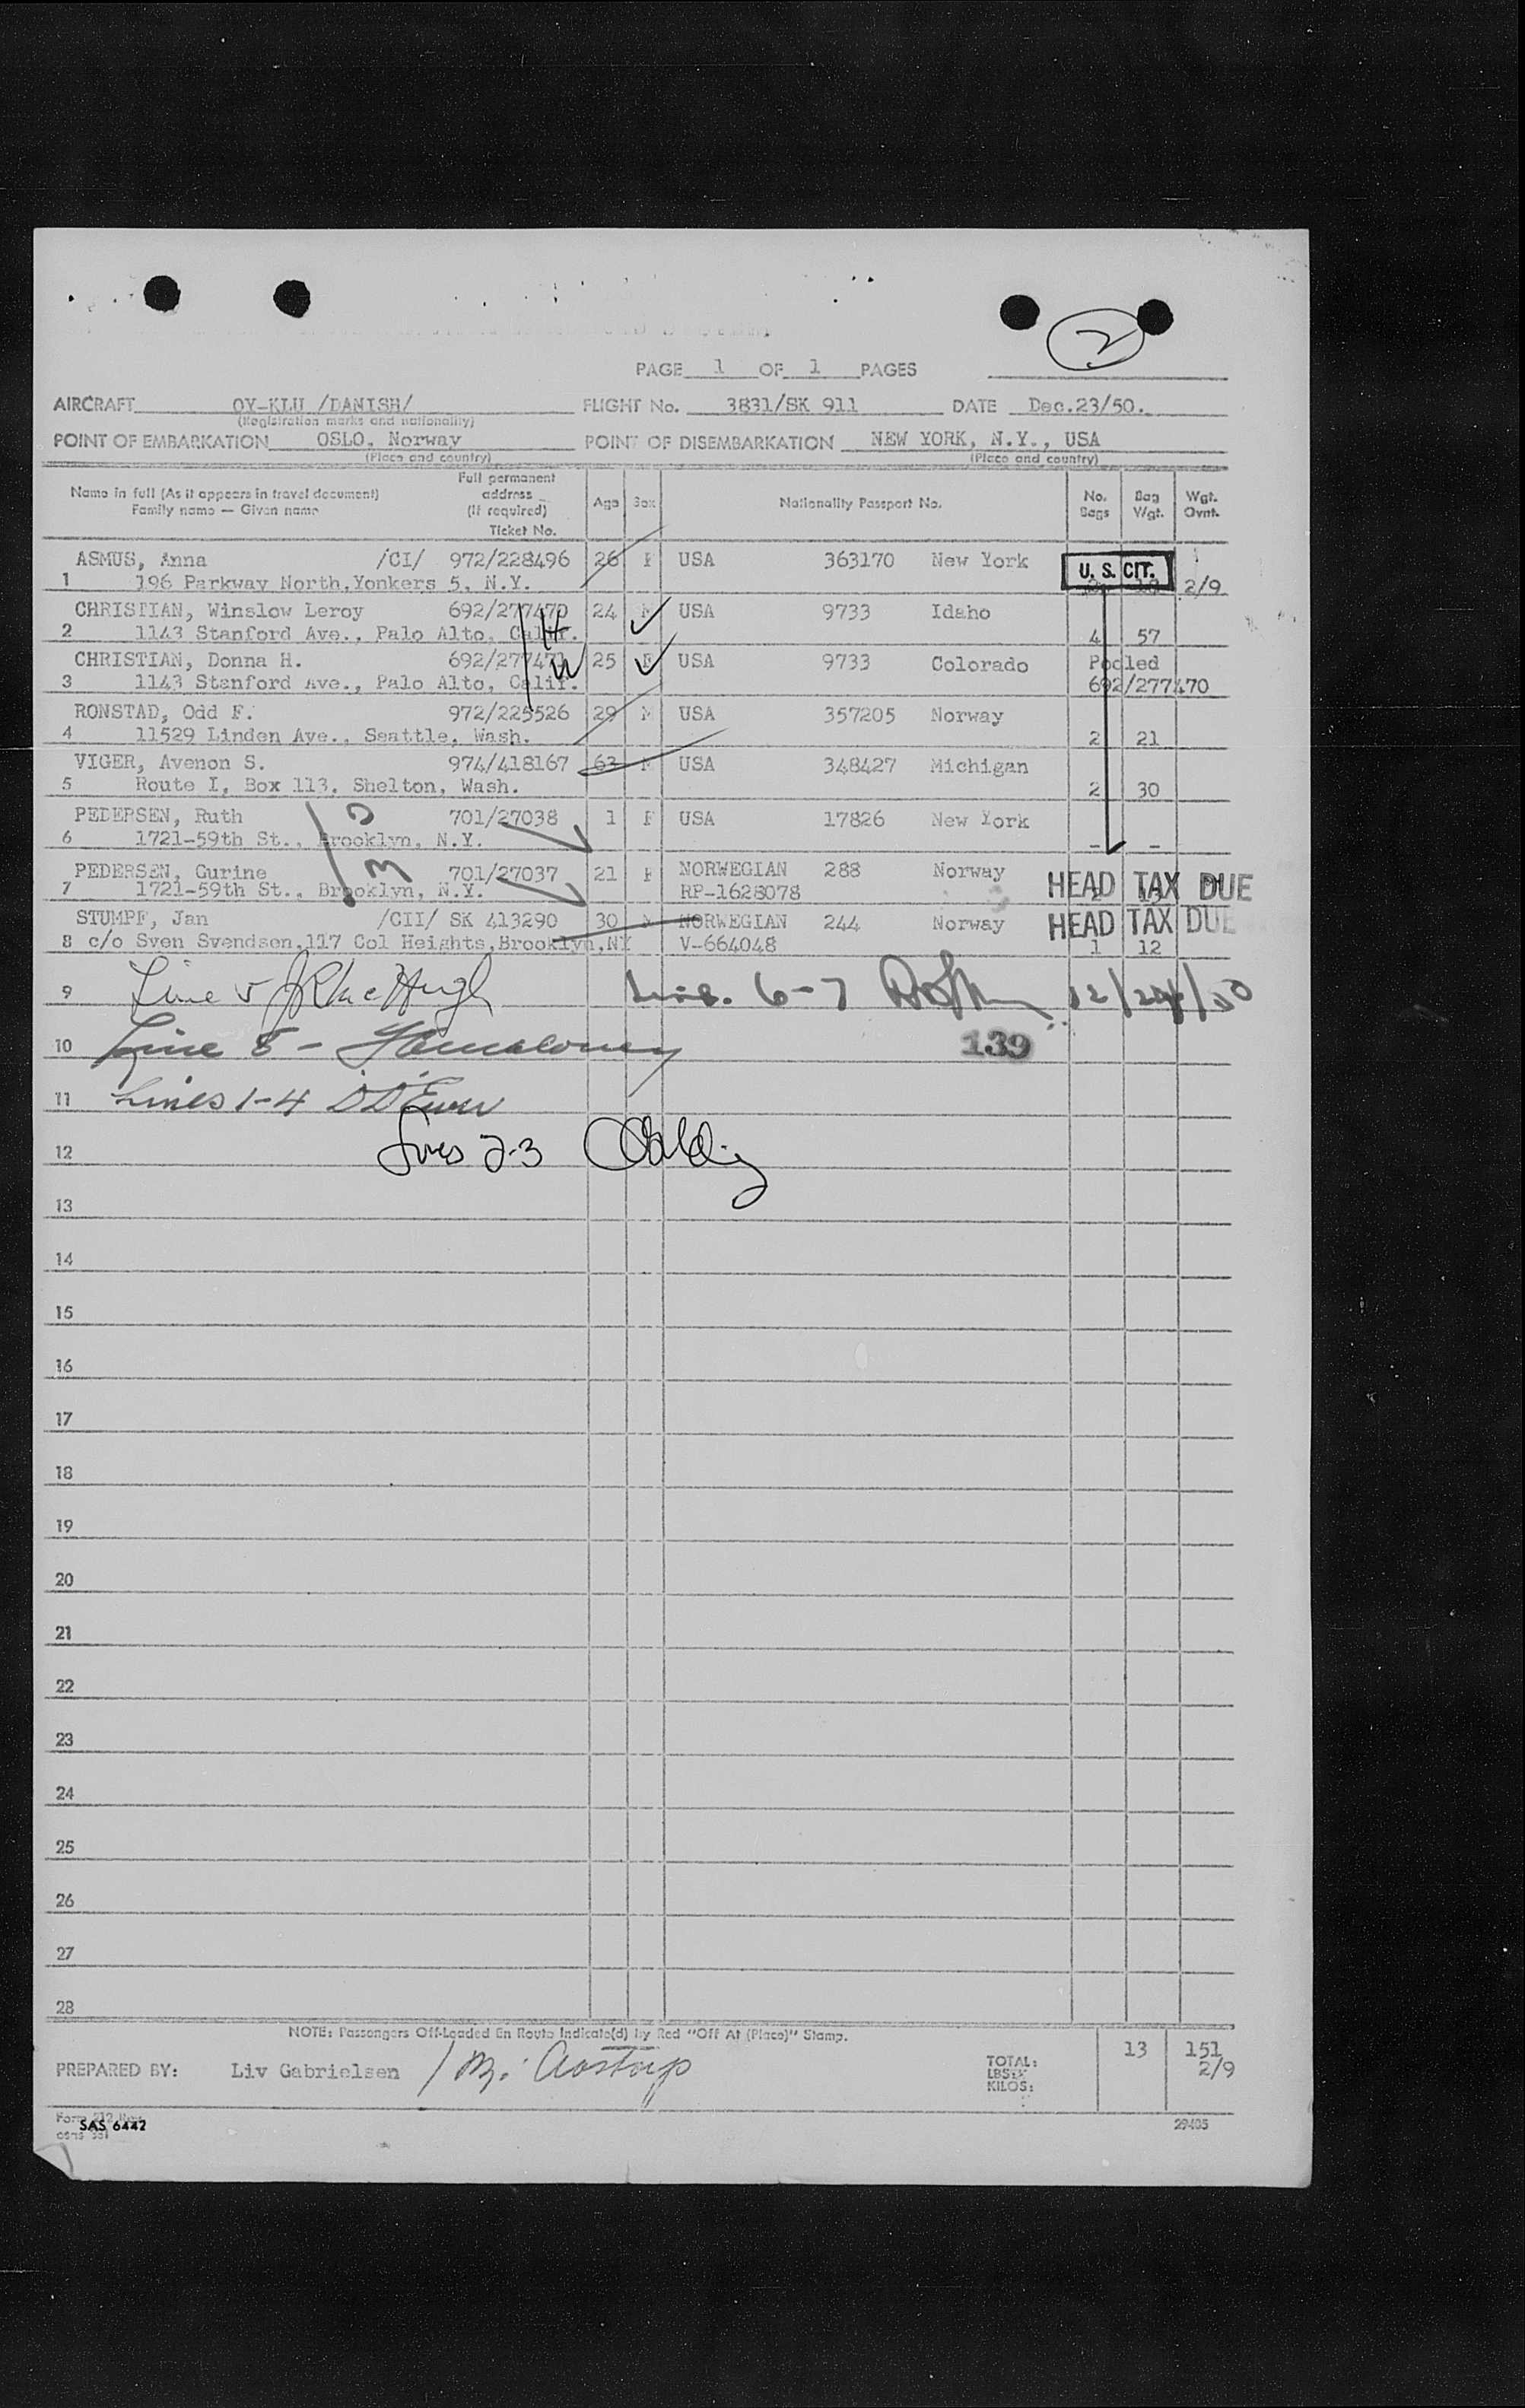 2
PAGE 1 OF 1 PAGES
AIRCRAFT OY-KLU /DANISH/ FLIGHT No. 3831/SK 911 DATE Dec.23/50.
(Registration marks and nationality)
POINT OF EMBARKATION OSLO, Norway POINT OF DISEMBARKATION NEW YORK, N.Y., USA
(Place and country) (Place and country)
Name in full (As it appears in travel document) Family name — Given name Full permanent address (if required) Ticket No. Age Sex Nationality Passport No. No. Bags Bag Wgt. Wgt. Ovnt.
ASMUS, Anna /CI/ 972/228496 26 F USA 363170 New York U. S. CIT.
1 196 Parkway North, Yonkers 5, N.Y. 2/9
CHRISTIAN, Winslow Leroy 692/277470 24 M USA 9733 Idaho
2 1143 Stanford Ave., Palo Alto, Calif. H 4 57
CHRISTIAN, Donna H. 692/277471 W 25 F USA 9733 Colorado Pooled
3 1143 Stanford Ave., Palo Alto, Calif. 692/277470
RONSTAD, Odd F. 972/225526 29 M USA 357205 Norway
4 11529 Linden Ave., Seattle, Wash. 2 21
VIGER, Avenon S. 974/418167 63 M USA 348427 Michigan
5 Route I, Box 113, Shelton, Wash. 2 30
PEDERSEN, Ruth 701/27038 1 F USA 17826 New York
6 1721-59th St., Brooklyn, N.Y. - -
PEDERSEN, Gurine 701/27037 21 F NORWEGIAN 288 Norway HEAD TAX DUE
7 1721-59th St., Brooklyn, N.Y. RP-1628078
STUMPF, Jan /CII/ SK 413290 30 M NORWEGIAN 244 Norway HEAD TAX DUE
8 c/o Sven Svendsen, 117 Col Heights, Brooklyn, NY V-664048 1 12
9 Line 5 JR McHugh Lines 6-7 12/24/50
10 Line 8 - 139
11 Lines 1-4
12 Lines 2-3
13
14
15
16
17
18
19
20
21
22
23
24
25
26
27
28
NOTE: Passengers Off-Loaded En Route Indicate(d) by Red "Off At (Place)" Stamp.
PREPARED BY: Liv Gabrielsen / TOTAL: LBS: KILOS: 13 151 2/9
SAS 6442
29405